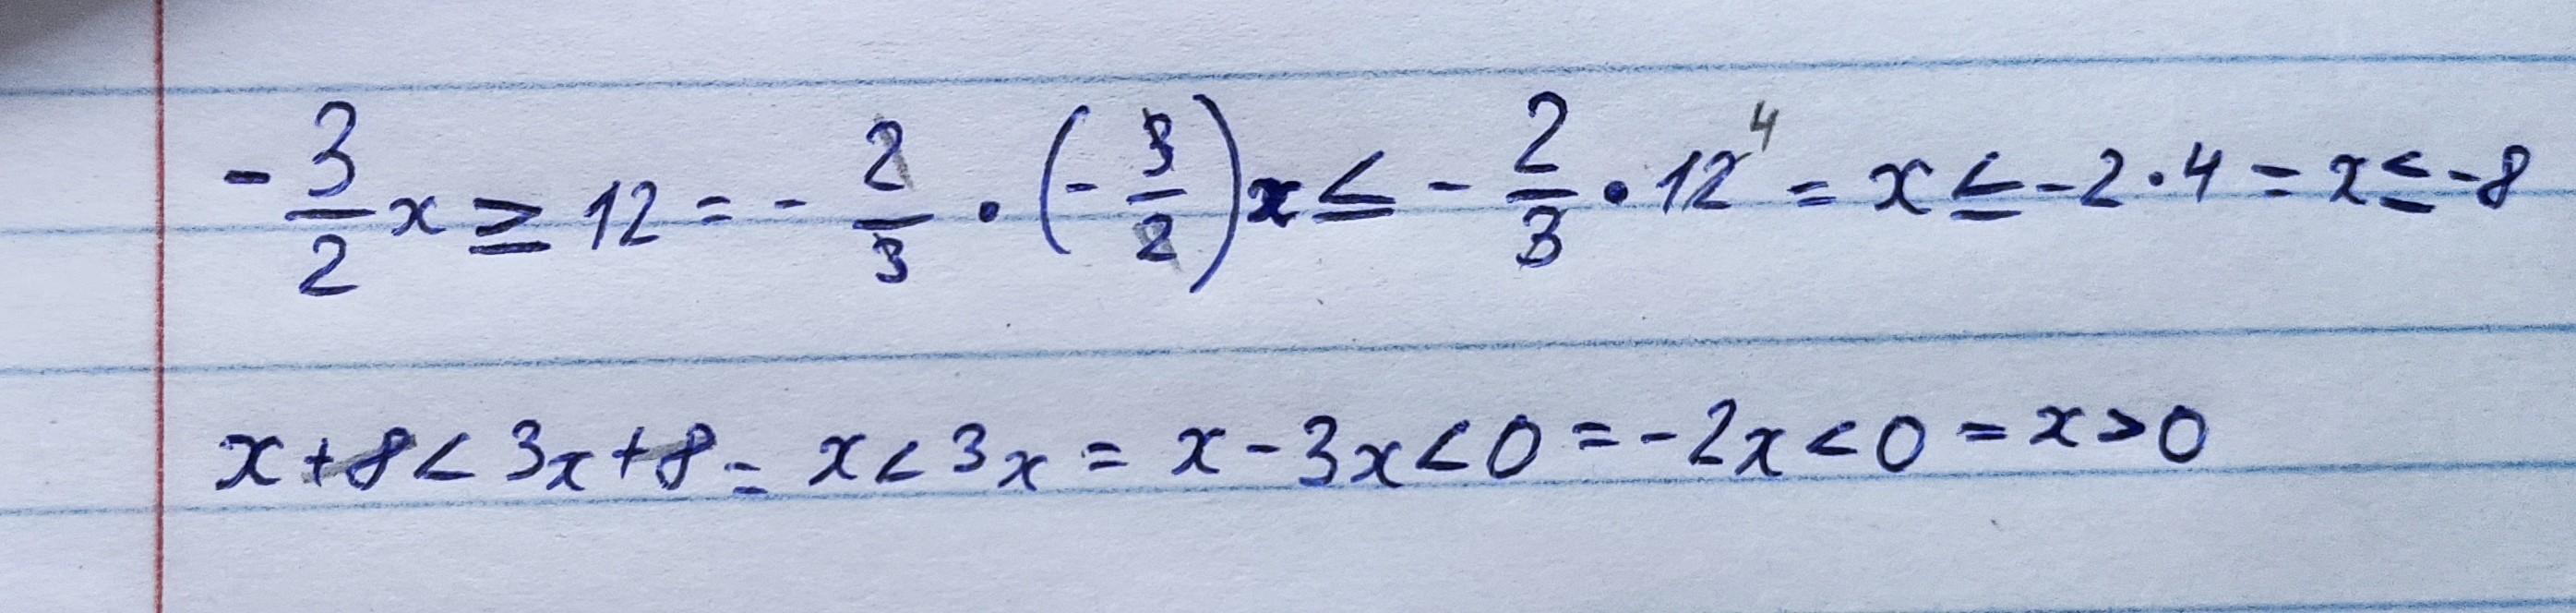 -3/2 x ≥ 12 = -2/3 · (-3/2)x ≤ -2/3 · 12 4 = x ≤ -2·4 = x ≤ -8
x+8 < 3x+8 = x < 3x = x-3x < 0 = -2x < 0 = x > 0